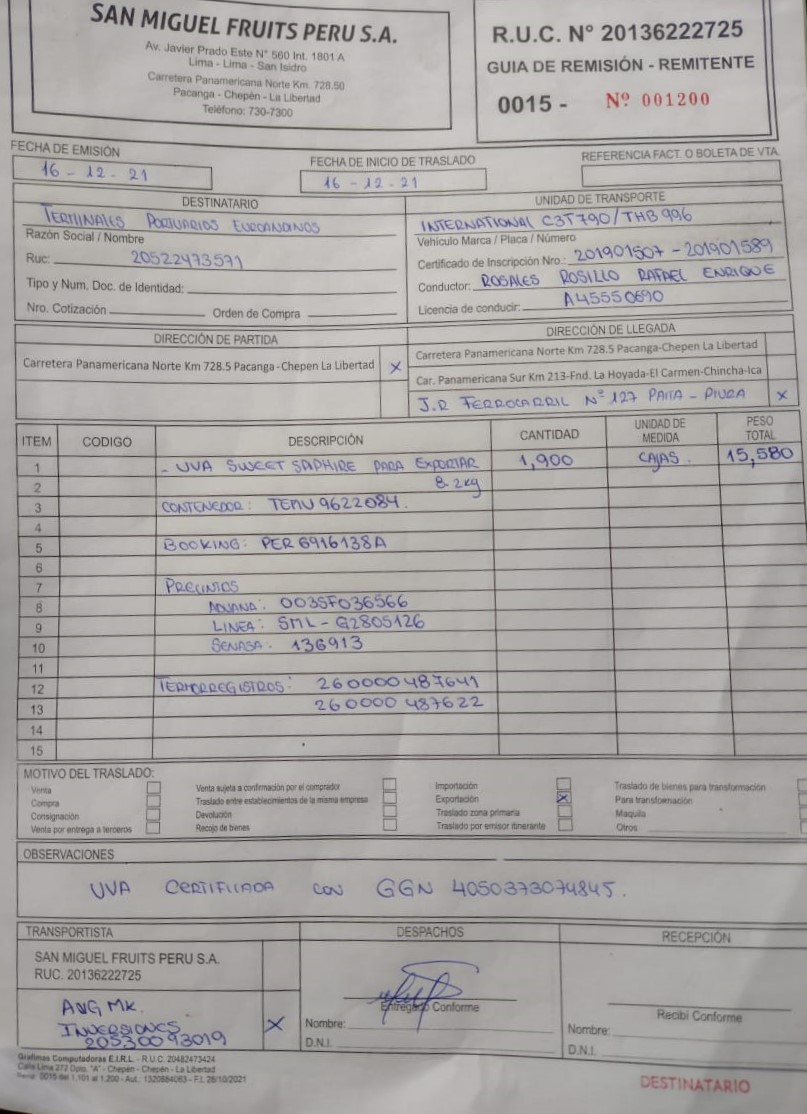 SAN MIGUEL FRUITS PERU S.A.
Av. Javier Prado Este N° 560 Int. 1801 A
Lima - Lima - San Isidro
Carretera Panamericana Norte Km. 728.50
Pacanga - Chepén - La Libertad
Teléfono: 730-7300
R.U.C. N° 20136222725
GUIA DE REMISIÓN - REMITENTE
0015 - Nº 001200
FECHA DE EMISIÓN
16 - 12 - 21
FECHA DE INICIO DE TRASLADO
16 - 12 - 21
REFERENCIA FACT. O BOLETA DE VTA.
DESTINATARIO
TERMINALES PORTUARIOS EUROANDINOS
Razón Social / Nombre
Ruc: 20522473571
Tipo y Num. Doc. de Identidad:
Nro. Cotización Orden de Compra
UNIDAD DE TRANSPORTE
INTERNATIONAL C3T790/THB996
Vehiculo Marca / Placa / Número
Certificado de Inscripción Nro.: 201901507 - 201901589
Conductor: ROSALES ROSILLO RAFAEL ENRIQUE
Licencia de conducir: A45550690
DIRECCIÓN DE PARTIDA
Carretera Panamericana Norte Km 728.5 Pacanga-Chepen La Libertad X
DIRECCIÓN DE LLEGADA
Carretera Panamericana Norte Km 728.5 Pacanga-Chepen La Libertad
Car. Panamericana Sur Km 213-Fnd. La Hoyada-El Carmen-Chincha-Ica
J.R FERROCARRIL Nº 127 PAITA - PIURA X
ITEM CODIGO DESCRIPCIÓN CANTIDAD UNIDAD DE MEDIDA PESO TOTAL
1 - UVA SWEET SAPHIRE PARA EXPORTAR 1,900 CAJAS. 15,580
2 8.2kg
3 CONTENEDOR: TEMU 9622084.
4
5 BOOKING: PER 6916138A
6
7 PRECINTOS
8 ADUANA: 003SF036566
9 LINEA: SML - G2805126
10 SENASA: 136913
11
12 TERMORREGISTROS: 260000487641
13 260000 487622
14
15
MOTIVO DEL TRASLADO:
Venta
Compra
Consignación
Venta por entrega a terceros
Venta sujeta a confirmación por el comprador
Traslado entre establecimientos de la misma empresa
Devolución
Recojo de bienes
Importación
Exportación X
Traslado zona primaria
Traslado por emisor itinerante
Traslado de bienes para transformación
Para transformación
Maquila
Otros
OBSERVACIONES
UVA CERTIFICADA CON GGN 4050373074845.
TRANSPORTISTA
SAN MIGUEL FRUITS PERU S.A.
RUC. 20136222725
ANG MK.
INVERSIONES
20530093019 X
DESPACHOS
Entregado Conforme
Nombre:
D.N.I.
RECEPCIÓN
Recibi Conforme
Nombre:
D.N.I.
Grafinas Computadoras E.I.R.L. - R.U.C. 20482473424
Calle Lima 272 Dpto. "A" - Chepén - Chepén - La Libertad
0015 del 1,101 al 1,200 - Aut.: 1320864063 - F.I. 28/10/2021
DESTINATARIO